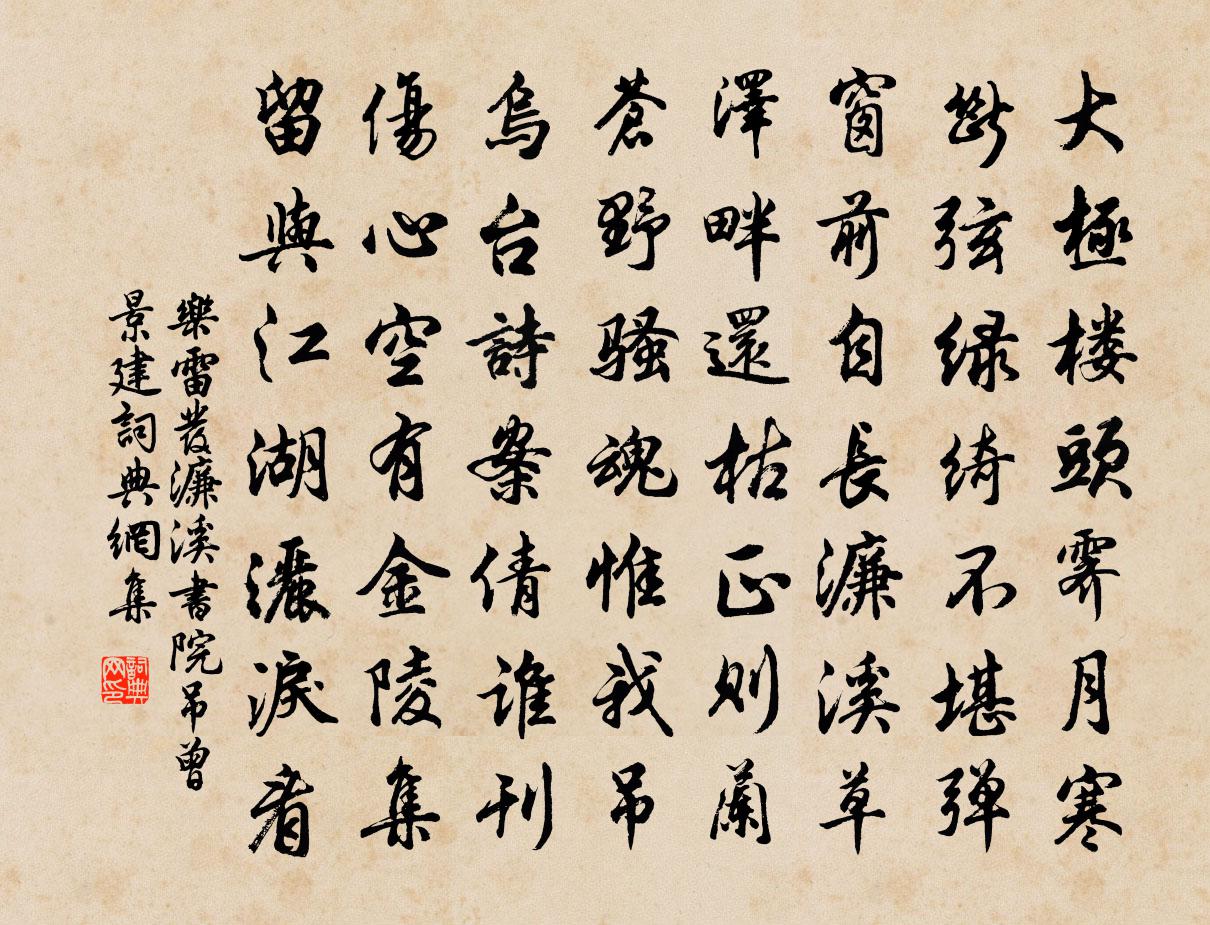 大極楼頭霽月寒
斷弦緑綺不堪弾
窗前自長濂溪草
澤畔還枯正則蘭
蒼野騷魂惟我吊
烏台詩案倩誰刊
傷心空有金陵集
留與江湖灑淚看
樂雷發濂溪書院吊曾
景建詞典網集
詞典网印